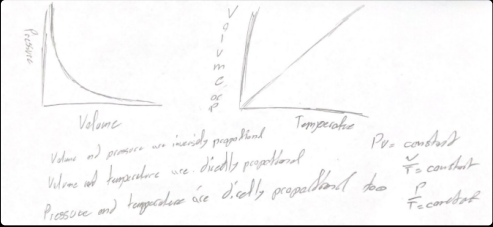 Pressure
Volume
Volume or P
Temperature
Volume and pressure are inversly propotional
Volume and temperature are directly propotional
Pressure and temperature are dirctly propotional too
PV = constant
V/T = constant
P/T = constant